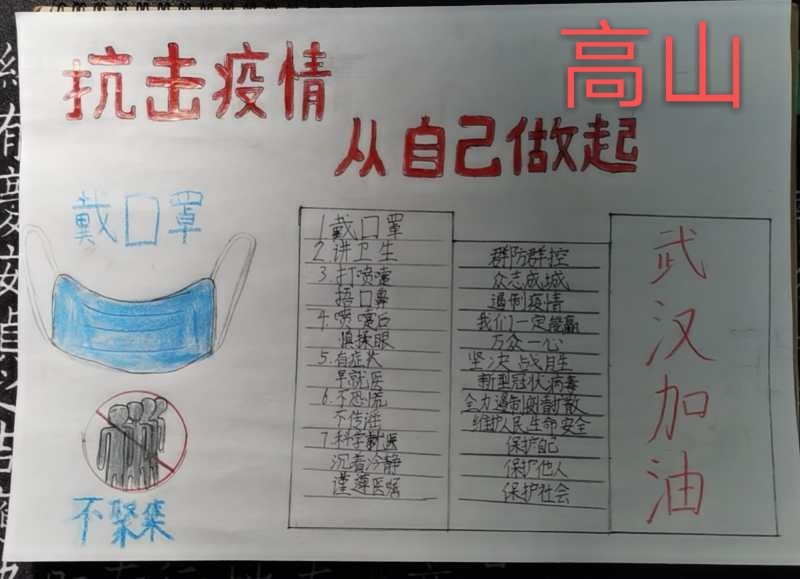 高山
抗击疫情
从自己做起
戴口罩
不聚集
1 戴口罩
2.讲卫生
3.打喷嚏
捂口鼻
4.喷嚏后
慎揉眼
5.有症状
早就医
6.不恐慌
不传谣
7.科学就医
沉着冷静
谨遵医嘱
群防群控
众志成城
遏制疫情
我们一定能赢
万众一心
坚决战胜
新型冠状病毒
全力遏制疫情扩散
维护人民生命安全
保护自己
保护他人
保护社会
武
汉
加
油